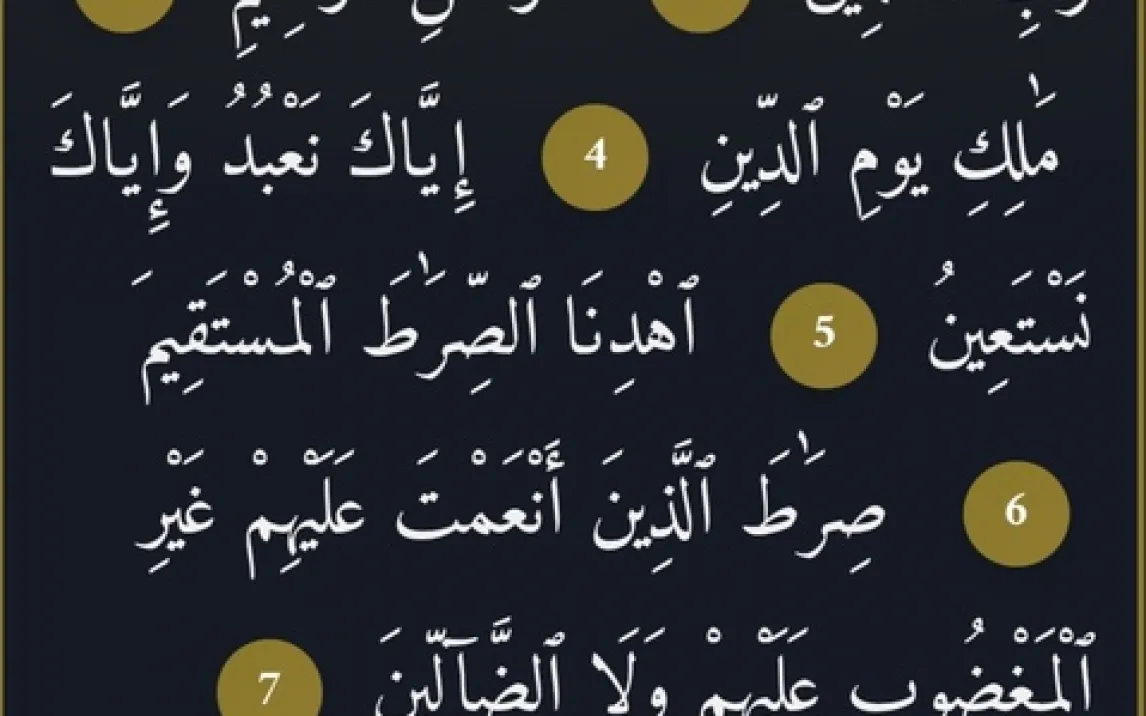 مَٰلِكِ يَوْمِ ٱلدِّينِ 4 إِيَّاكَ نَعْبُدُ وَإِيَّاكَ
نَسْتَعِينُ 5 ٱهْدِنَا ٱلصِّرَٰطَ ٱلْمُسْتَقِيمَ
6 صِرَٰطَ ٱلَّذِينَ أَنْعَمْتَ عَلَيْهِمْ غَيْرِ
ٱلْمَغْضُوبِ عَلَيْهِمْ وَلَا ٱلضَّآلِّينَ 7